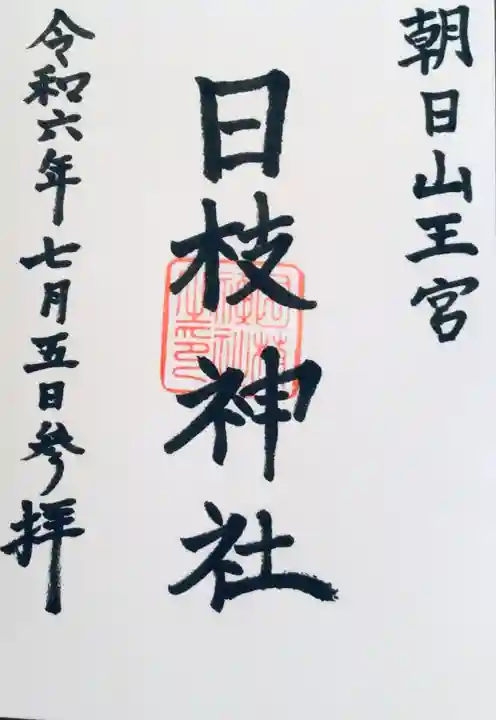 朝日山王宮
日枝神社
令和六年七月五日参拝